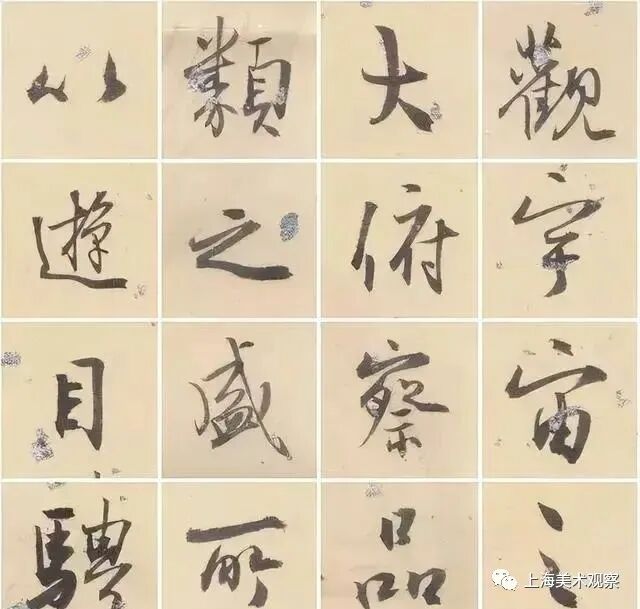 觀宇宙之
大俯察品
類之盛所
以遊目騁
上海美术观察